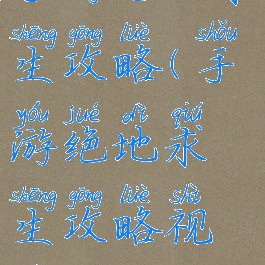 shēng gōng lüè shǒu
生攻略(手
yóu jué dì qiú
游绝地求
shēng gōng lüè shì
生攻略视